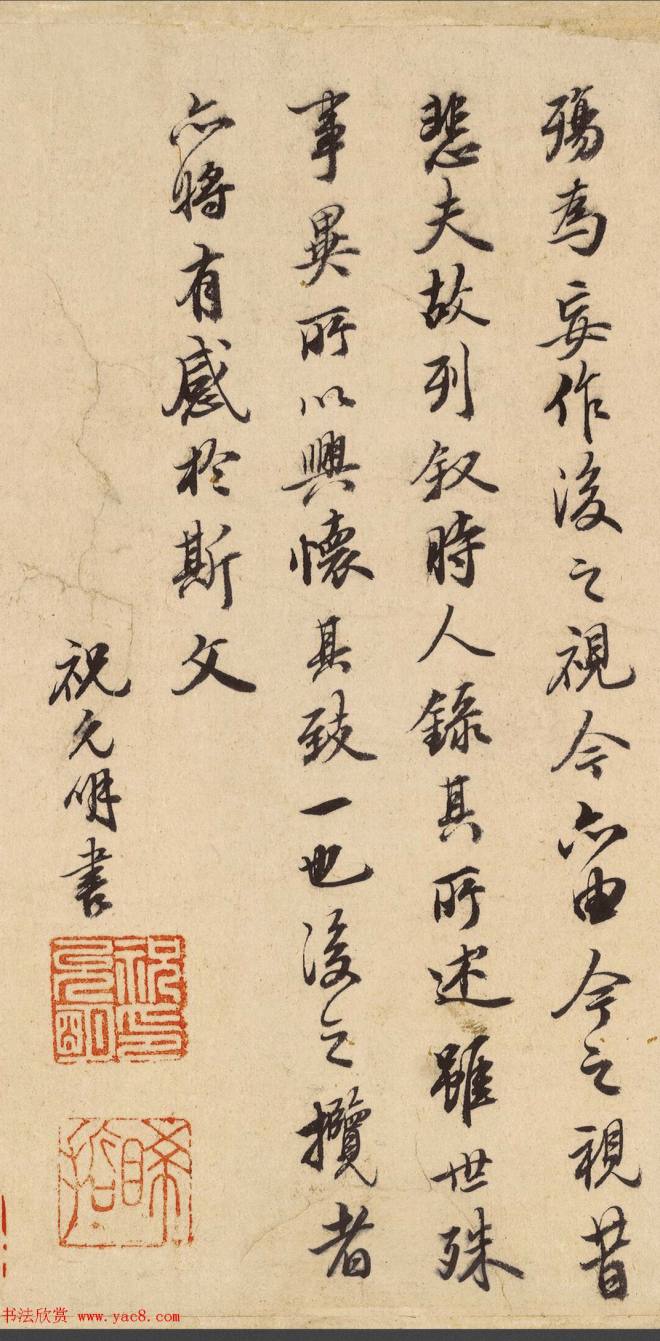 殤為妄作後之視今亦由今之視昔
悲夫故列叙時人錄其所述雖世殊
事異所以興懷其致一也後之攬者
亦將有感於斯文
祝允明書
祝允明印
晞喆
书法欣赏 www.yac8.com